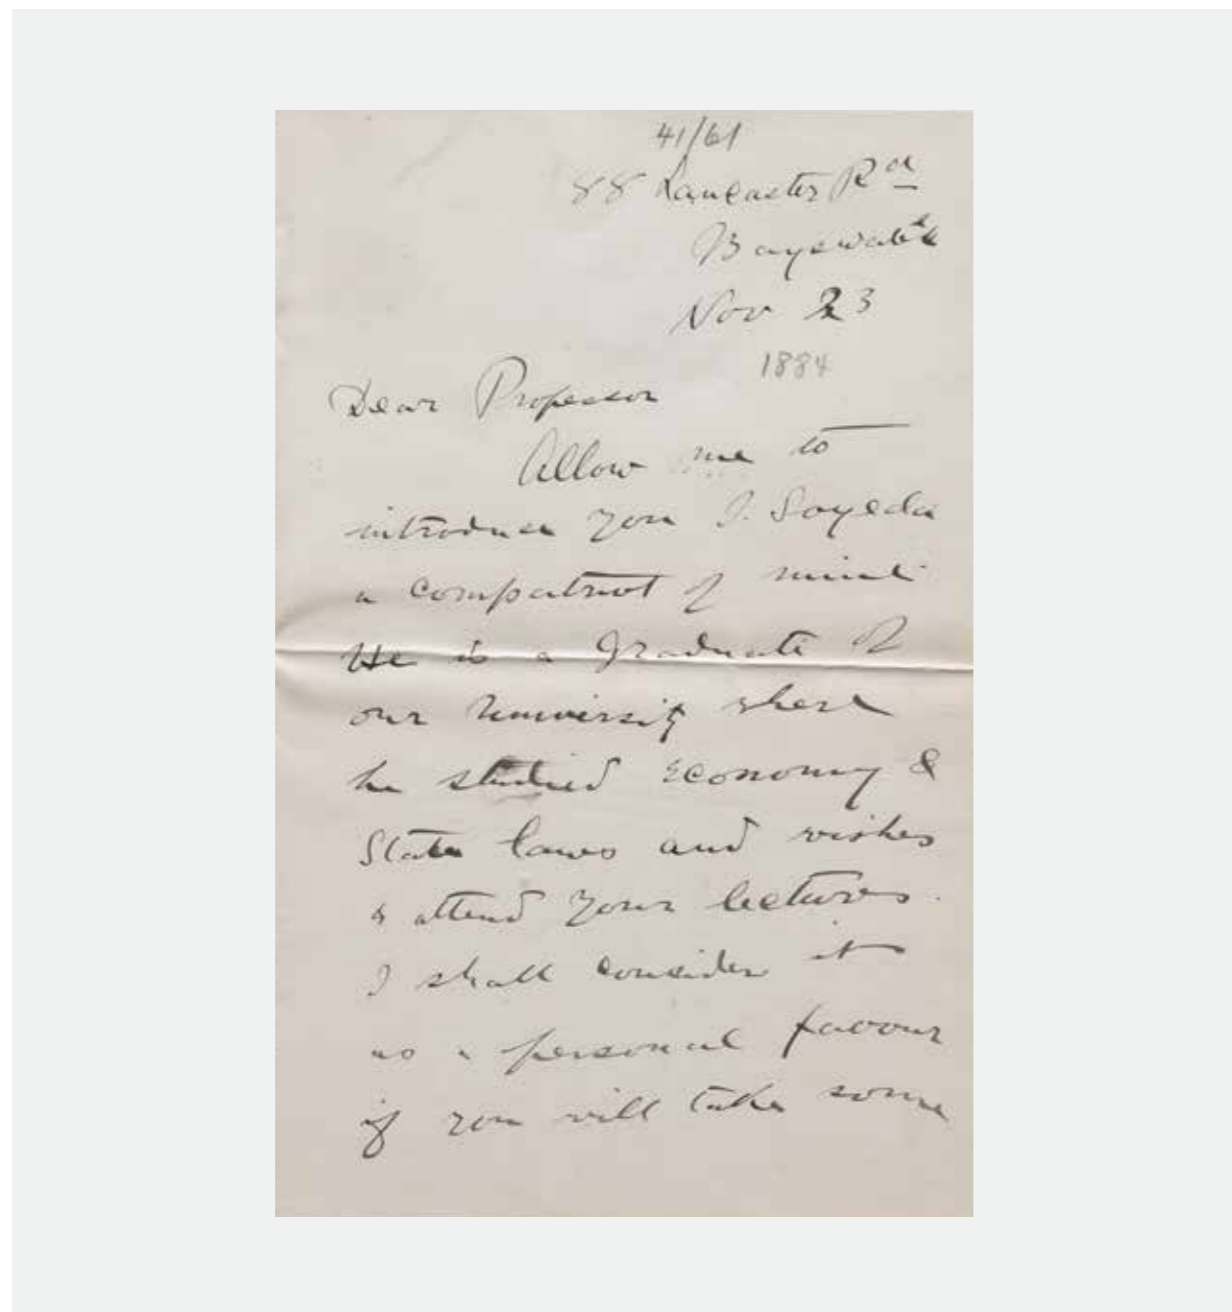 41/61
88 Lancaster Rd
Bayswater
Nov 23
1884
Dear Professor
Allow me to
introduce you J. Soyeda
a compatriot of mine
He is a Graduate of
our University where
he studied Economy &
State laws and wishes
to attend your lectures.
I shall consider it
as a personal favour
if you will take some